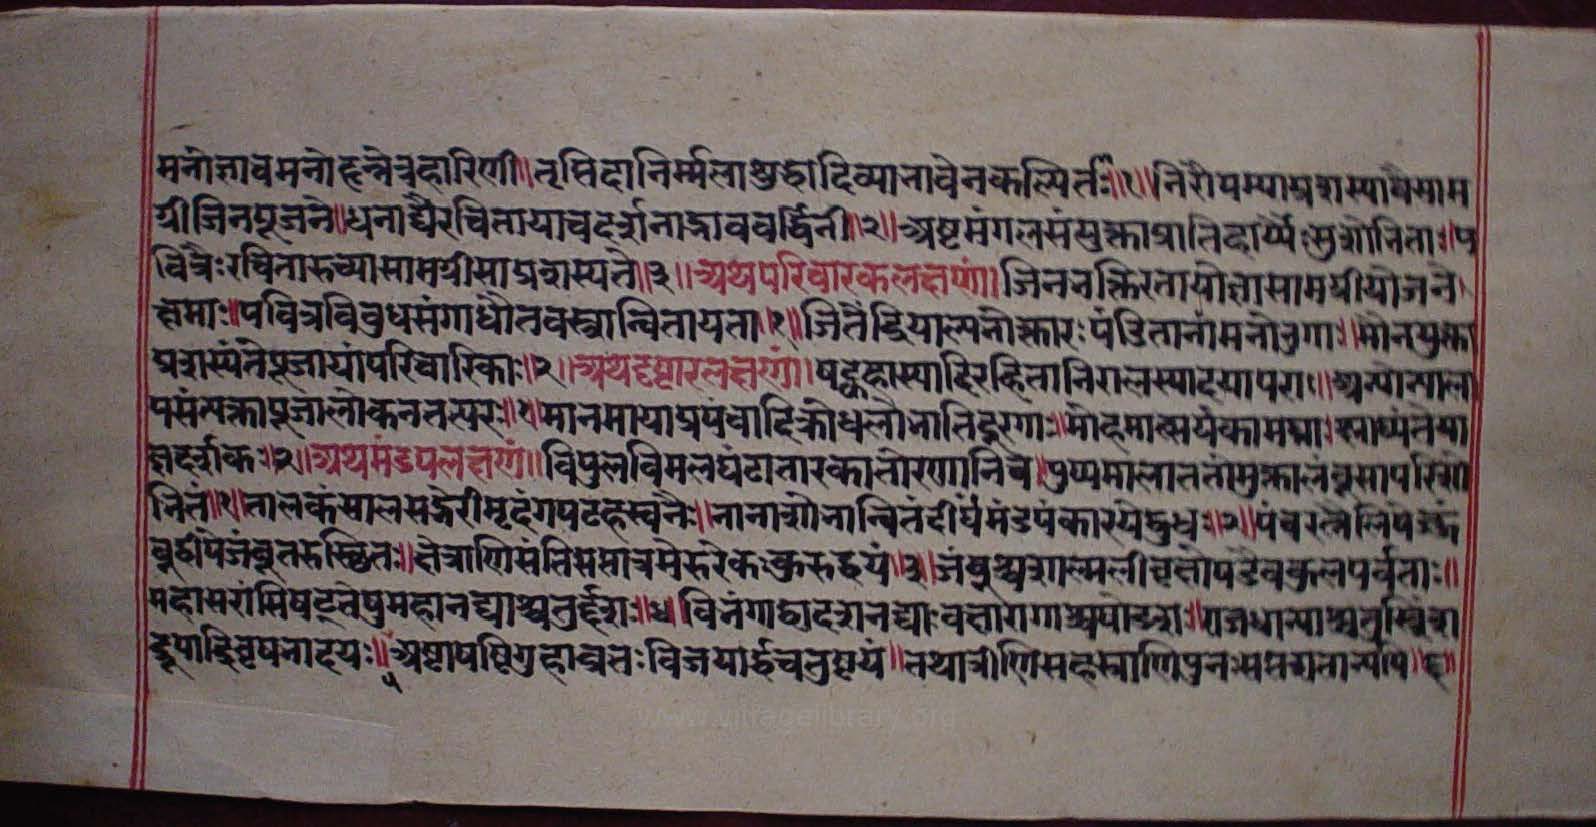 मनोज्ञावमनोहृन्नेत्रहारिणी॥तृप्तिदानिर्म्मलाशुद्धादिव्यानावेनकल्पितैः॥१॥निरौपम्याप्रशस्यायैसाम
ग्रीजिनपूजने॥धनाद्यैरचितायाचदर्शनाद्भाववर्द्धिनी॥२॥अष्टमंगलसंयुक्ताप्रातिहार्य्यैःसुशोनिताः॥प
वित्रैःरचितारुच्यासामग्रीसाप्रशस्यते॥३॥अथपरिवारकलक्षणं॥जिनभक्तिरतायोक्तासामग्रीयोजने
क्षमाः॥पवित्रविबुधसंगाधौतवस्त्रान्वितायता॥१॥जितेंद्रियाल्पनोक्तारःपंडितानांमनोनुगा॥मौनयुक्ता
प्रशस्यंतेपूजायांपरिवारिकाः॥२॥अथदृष्टारलक्षणं॥षड्हास्यादिरहितानिरालस्यादयापरा॥अन्योन्याला
पसंत्यक्तापूजालोकनतत्परः॥१॥मानमायाप्रपंचादिक्रोधलोभातिदूरगाः॥मोहमात्सर्यकामघ्नाःश्लाघ्यंतेय
ज्ञदर्शकः॥२॥अथमंडपलक्षणं॥विपुलविमलघंटातारकातोरणानिच॥पुष्पमालाततोमुक्तालंबूसापरिशो
नितं॥१॥तालकंसालसज्जेरीमृदंगपटहस्वनैः॥नानाशोनान्वितंदीर्घंमंडपंकारयेद्बुधः॥२॥पंचरत्नैर्लिपे
बूद्वीपंजंबूतरुस्थितः॥क्षेत्राणिसंतिसप्तात्रमेरुरेकःकुरुद्वयं॥३॥जंबूश्चशाल्मलीवृक्षौषडेवकुलपर्वताः॥
महासरांसिषट्तेषुमहानद्याश्चतुर्द्दश॥४॥विनंगाद्वादशनद्याःवक्षारागाश्चषोडश॥राजधान्याश्चतुस्त्रिंश
द्रूपाद्रिवृषनादयः॥५॥अष्टाषष्टिगुहावृत्तःविजयार्द्धचतुष्टयं॥तथात्रीणिसहस्राणिपुनःसप्तशतान्यपि॥६॥
www.vjtragelibrary.org